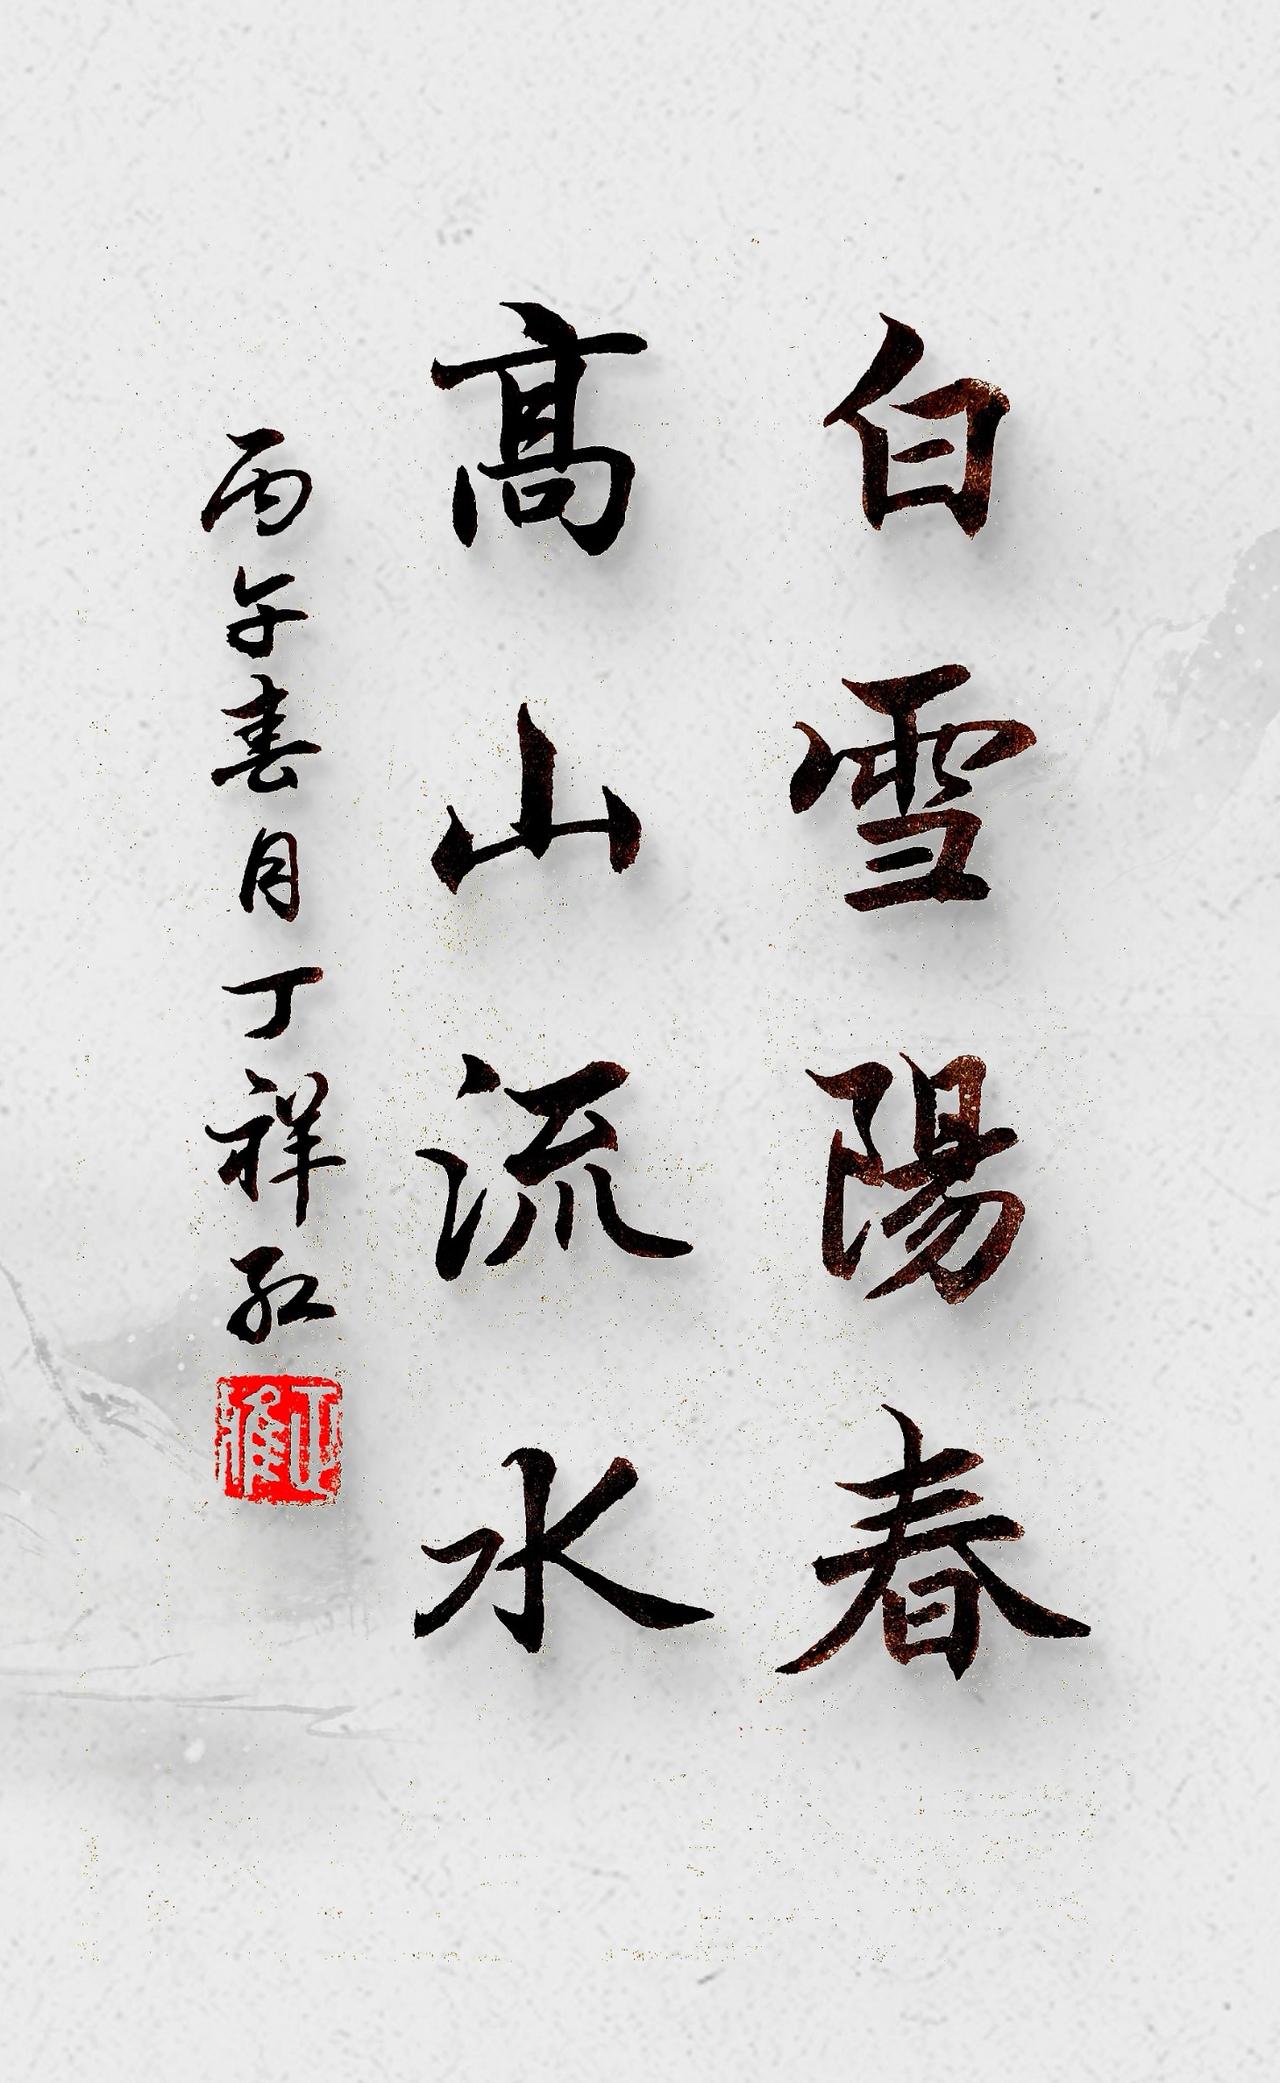 白雪陽春
高山流水
丙午春月丁祥红